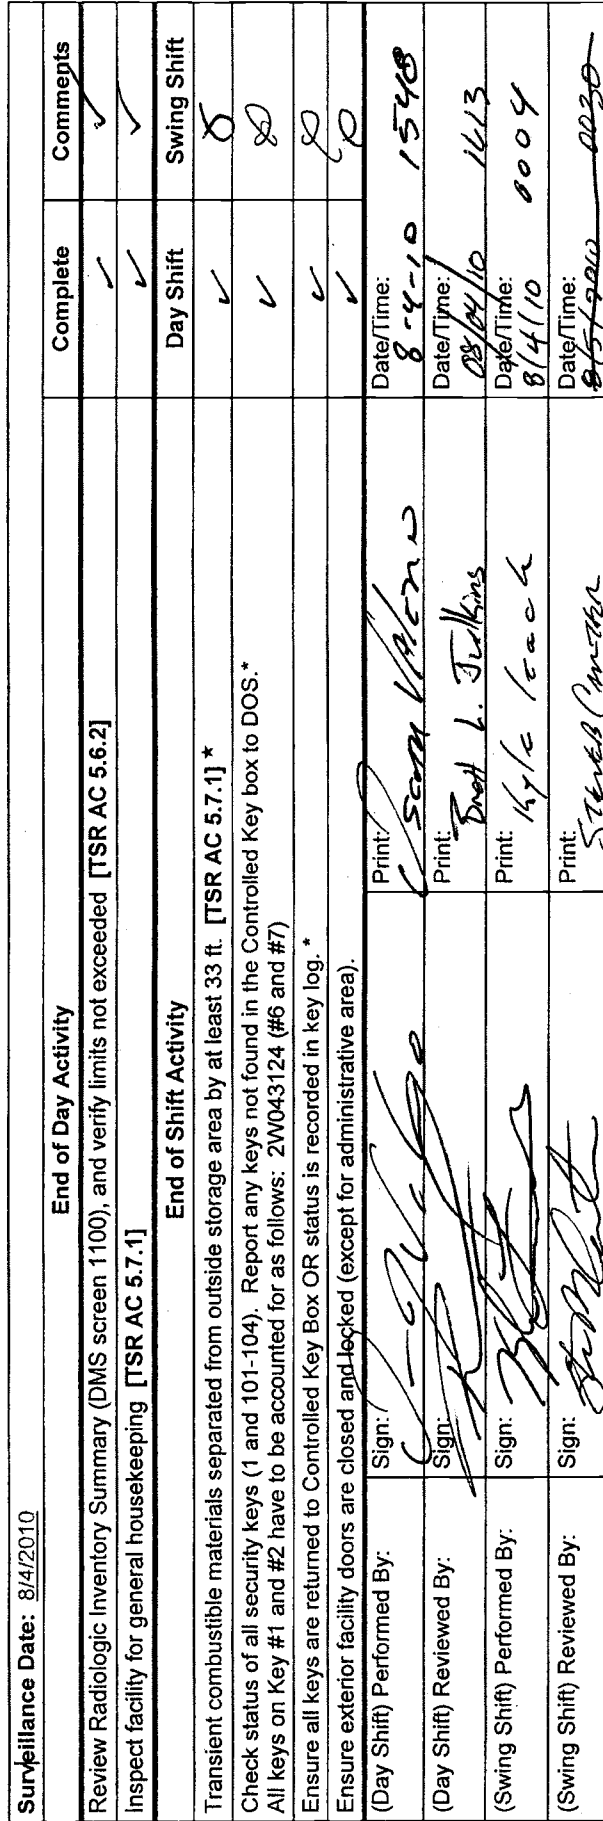 Surveillance Date: 8/4/2010
End of Day Activity Complete Comments
Review Radiologic Inventory Summary (DMS screen 1100), and verify limits not exceeded [TSR AC 5.6.2] ✓ ✓
Inspect facility for general housekeeping [TSR AC 5.7.1] ✓ ✓
End of Shift Activity Day Shift Swing Shift
Transient combustible materials separated from outside storage area by at least 33 ft. [TSR AC 5.7.1] * ✓
Check status of all security keys (1 and 101-104). Report any keys not found in the Controlled Key box to DOS.* ✓
All keys on Key #1 and #2 have to be accounted for as follows: 2W043124 (#6 and #7)
Ensure all keys are returned to Controlled Key Box OR status is recorded in key log. * ✓
Ensure exterior facility doors are closed and locked (except for administrative area). ✓
(Day Shift) Performed By: Sign: Print: Scott Date/Time: 8-4-10 1548
(Day Shift) Reviewed By: Sign: Print: Brett L. Julkins Date/Time: 08/04/10 1613
(Swing Shift) Performed By: Sign: Print: Kyle Leach Date/Time: 8/4/10 0004
(Swing Shift) Reviewed By: Sign: Print: Date/Time: 8/5/2010 0030